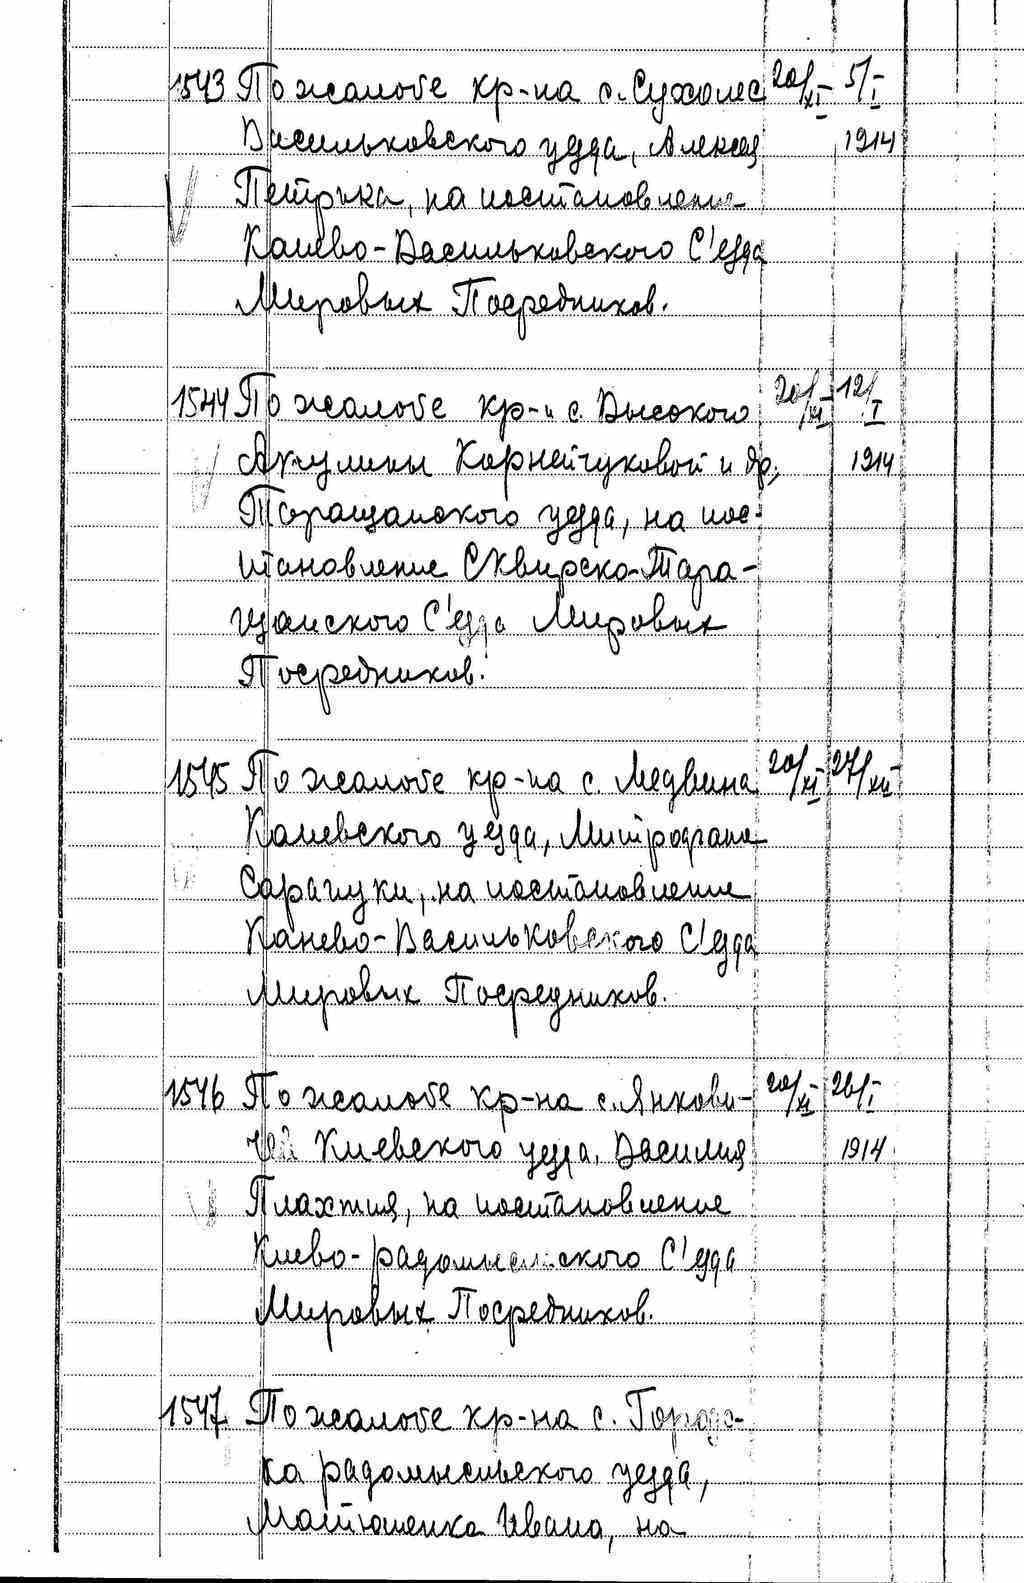 1543 По жалобе кр-на с. Сухолес 20/XI 5/I
Васильковского уезда, Алексея 1914
Петрыка, на постановление
Канево-Васильковского С'езда
Мировых Посредников.
1544 По жалобе кр-н с. Высокого 20/XI 12/I
Акулины Корнейчуковой и др. 1914
Таращанского уезда, на пос-
тановление Сквирско-Тара-
щанского С'езда Мировых
Посредников.
1545 По жалобе кр-на с. Медвина 20/XI 27/XII
Каневского уезда, Митрофана
на постановление
Канево-Васильковского С'езда
Мировых Посредников.
1546 По жалобе кр-на с. Янкови- 20/XI 26/I
чей Киевского уезда, Василия 1914
Плахтия, на постановление
Киево-радомысльского С'езда
Мировых Посредников.
1547 По жалобе кр-на с. Городс-
ка радомысльского уезда,
Матюшенка Ивана, на